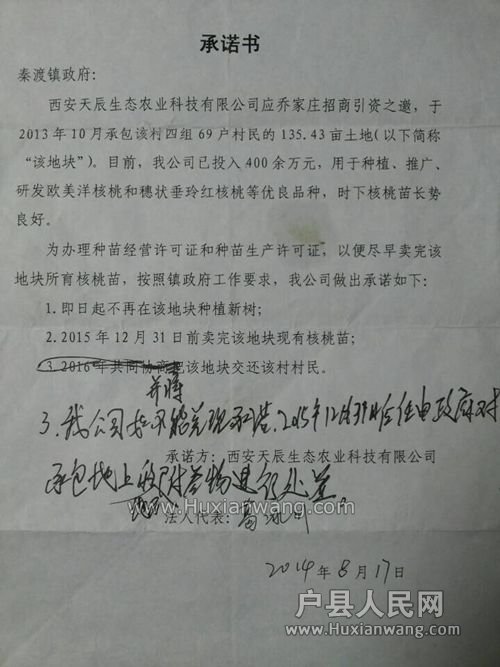 承诺书
秦渡镇政府:
西安天辰生态农业科技有限公司应乔家庄招商引资之邀,于
2013年10月承包该村四组69户村民的135.43亩土地(以下简称
“该地块”)。目前,我公司已投入400余万元,用于种植、推广、
研发欧美洋核桃和穗状垂玲红核桃等优良品种,时下核桃苗长势
良好。
为办理种苗经营许可证和种苗生产许可证,以便尽早卖完该
地块所育核桃苗,按照镇政府工作要求,我公司做出承诺如下:
1.即日起不再在该地块种植新树;
2.2015年12月31日前卖完该地块现有核桃苗;
3.2016年共同协商完该地块交还该村村民。
并将
3、我公司如不能兑现承诺,2015年12月31日后任由政府对
承诺方:西安天辰生态农业科技有限公司
承包地上附着物进行处置。
法人代表:
www.Huxianwang.com
2014年8月17日
户县人民网
www.Huxianwang.com